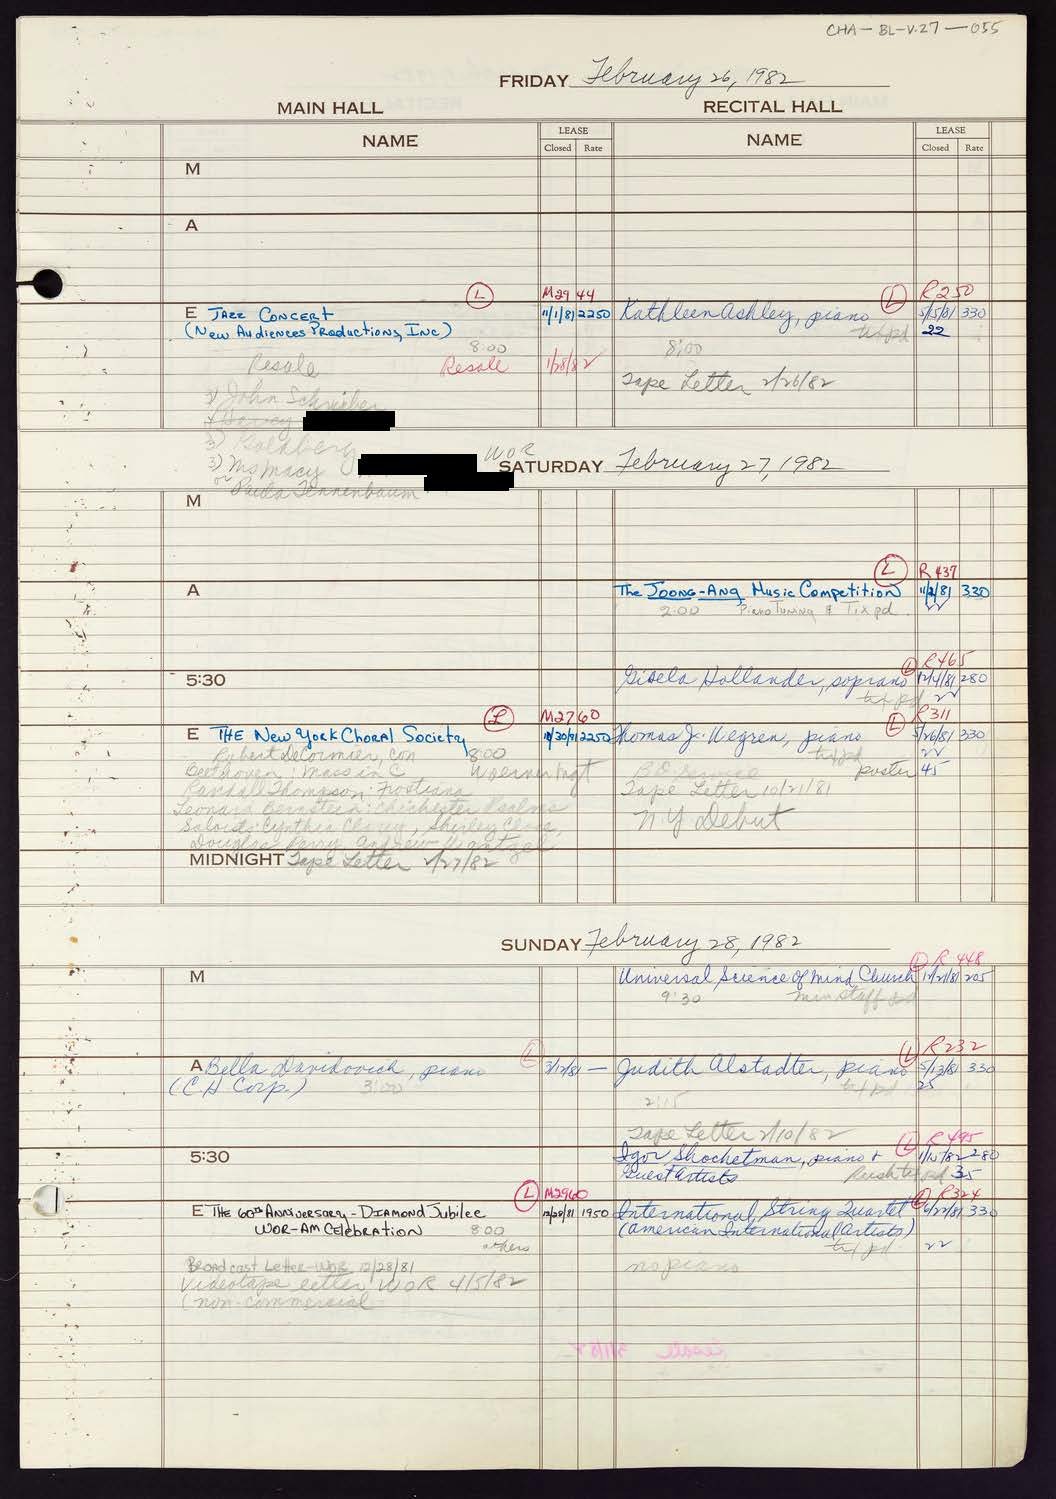 CHA-BL-V.27-055
FRIDAY February 26, 1982
MAIN HALL
RECITAL HALL
NAME
LEASE
Closed Rate
NAME
LEASE
Closed Rate
M
A
L M29 44
L R250
E JAZZ CONCERT 11/1/81 2250
(New Audiences Productions, Inc)
8:00
Resale Resale 1/28/82
Kathleen Ashley, piano 5/15/81 330
tix pd 22
8:00
Tape Letter 2/26/82
John Schreiber
3) Goldberg
3) Ms Macy WOR
or Paula Tennenbaum
SATURDAY February 27, 1982
M
L R437
A
The JOONG-ANG Music Competition 11/2/81 330
2:00 Piano Tuning & Tix pd.
L R465
5:30
Gisela Hollander, soprano 12/4/81 280
tix pd 22
L M2760
L R311
E THE New York Choral Society 10/30/81 2250
Robert DeCormier, con 8:00
Beethoven: Mass in C
Randall Thompson: Frostiana
Leonard Bernstein: Chichester Psalms
Soloists: Cynthia Clarey, Shirley Close,
Douglas Perry, Andrew
MIDNIGHT Tape Letter 2/27/82
Thomas J. Wegren, piano 5/26/81 330
tix pd 22
poster 45
Tape Letter 10/21/81
N.Y Debut
SUNDAY February 28, 1982
L R 448
M
Universal Science of Mind Church 205
9:30 Min staff pd
L
L R232
A Bella Davidovich, piano 3/12/81 —
(C H Corp.) 3:00
Judith Alstadter, piano 5/13/81 330
tix pd 25
2:15
Tape Letter 2/10/82
L R495
5:30
Igor Shochetman, piano + 280
Guest Artists Rush tix pd 35
L M2960
L R324
E THE 60th ANNIVERSARY - DIAMOND JUBILEE 12/28/81 1950
WOR-AM CELEBRATION 8:00
others
Broadcast Letter - WOR 12/28/81
Videotape letter WOR 4/5/82
(non-commercial
International String Quartet 6/22/81 330
(American International Artists)
tix pd 22
no piano